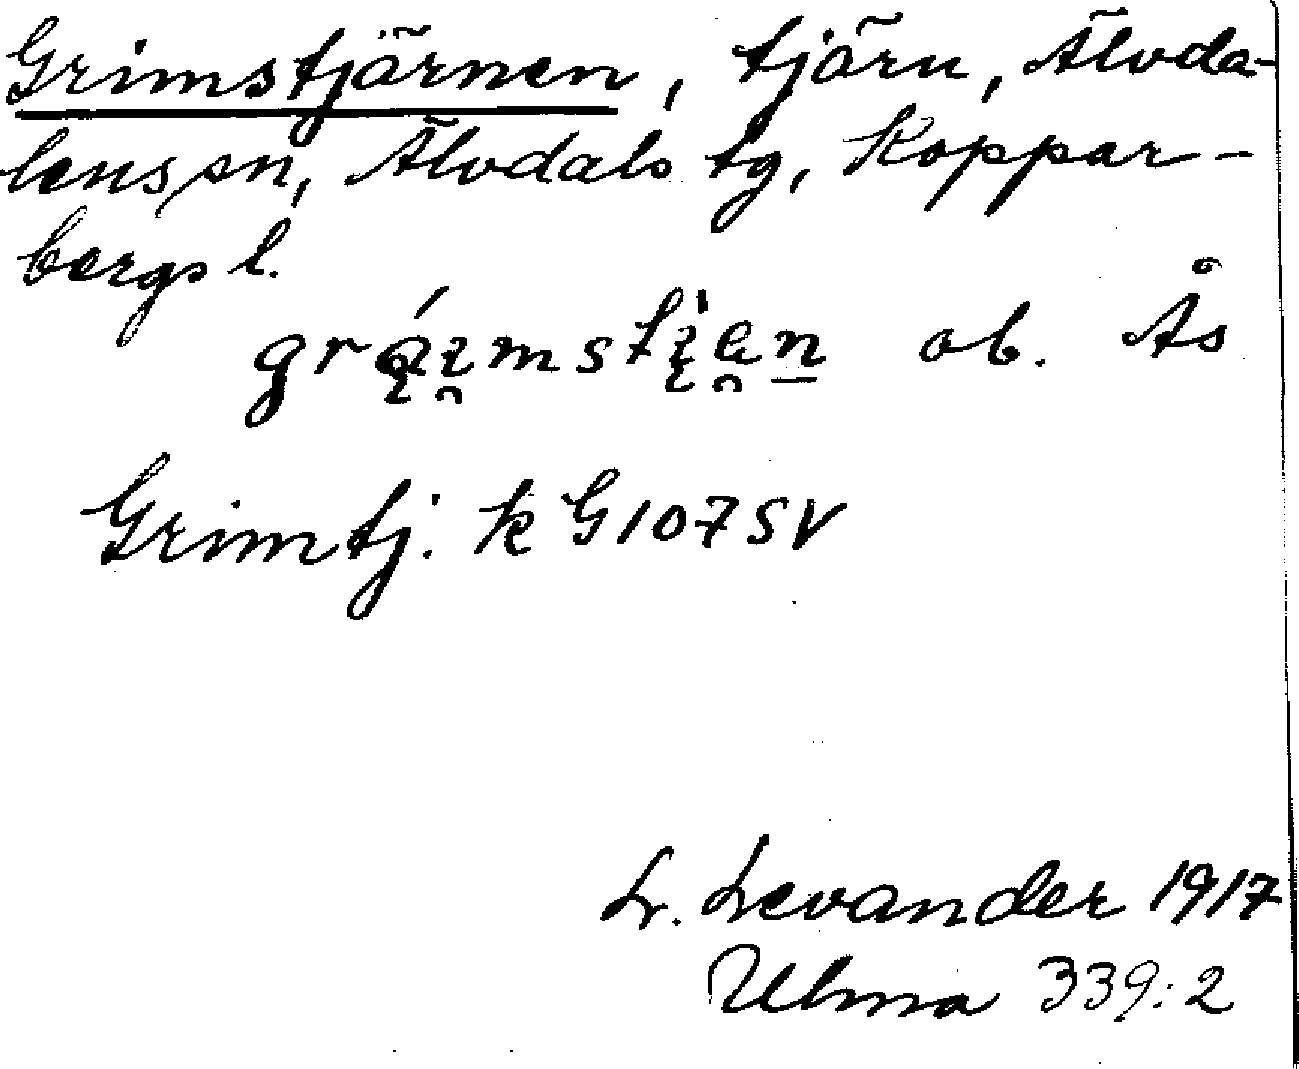 Grimstjärnen, tjärn, Älvda-
lens sn, Älvdals tg, Koppar-
bergs l.
ob. Ås
Grimtj. k G107SV
L. Levander 1917
Ulma 339:2